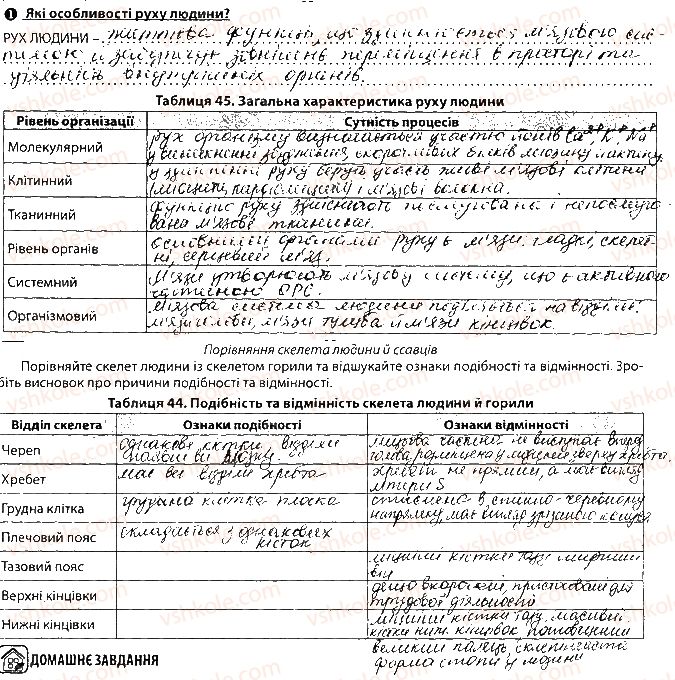 1 Які особливості руху людини?
РУХ ЛЮДИНИ – життєва функція, що здійснюється м'язовою сис-
темою и зовнішнє переміщення в просторі та
діяльність внутрішніх органів.
Таблиця 45. Загальна характеристика руху людини
Рівень організації Сутність процесів
Молекулярний рух організму визначається участю йонів Ca2+, K+, Na+
у скорочливих білків міозину і актину
Клітинний у здійсненні руху беруть участь живі м'язові клітини
і м'язові волокна.
Тканинний функцію руху здійснюють посмугована і непосмуго-
вана м'язові тканини.
Рівень органів основними органами руху є м'язи: гладкі, скелет-
ні, серцевий м'яз.
Системний М'язи утворюють м'язову систему, що є активною
частиною ОРС.
Організмовий М'язова система людини поділяється на відділи:
м'язи голови, м'язи тулуба й м'язи кінцівок.
Порівняння скелета людини й ссавців
Порівняйте скелет людини із скелетом горили та відшукайте ознаки подібності та відмінності. Зро-
біть висновок про причини подібності та відмінності.
Таблиця 44. Подібність та відмінність скелета людини й горили
Відділ скелета Ознаки подібності Ознаки відмінності
Череп однакові кістки, відділи лицьова частина не виступає вперед
голова розміщена зверху хребта
Хребет має всі відділи хребта хребет не прямий, а має вигляд
літери S
Грудна клітка грудна клітка плоска стиснена в спинно-черевному
напрямку, має вигляд
Плечовий пояс складається з однакових
кісток
Тазовий пояс кістки тазу
Верхні кінцівки дещо вкорочені, пристосовані для
трудової діяльності
Нижні кінцівки кістки тазу, масивні
кістки ниж. кінцівок потовщений
великий палець, склепінчаста
форма стопи у людини
ДОМАШНЄ ЗАВДАННЯ
vshkole.com